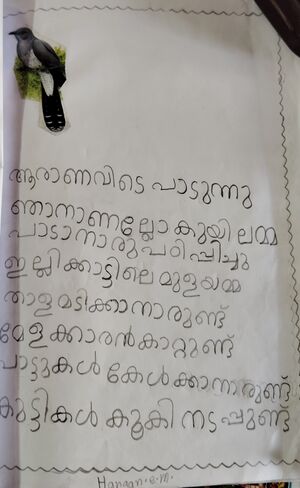 ആരാണവിടെ പാടുന്നു
ഞാനാണല്ലോ കുയിലമ്മ
പാടാനാരുപഠിപ്പിച്ചു
ഇല്ലിക്കാട്ടിലെ മുളയമ്മ
താളമടിക്കാനാരുണ്ട്
മേളക്കാരൻകാറ്റുണ്ട്
പാട്ടുകൾ കേൾക്കാനാരുണ്ട്
കുട്ടികൾ കൂകി നടപ്പുണ്ട്
Hanaan.e.m.